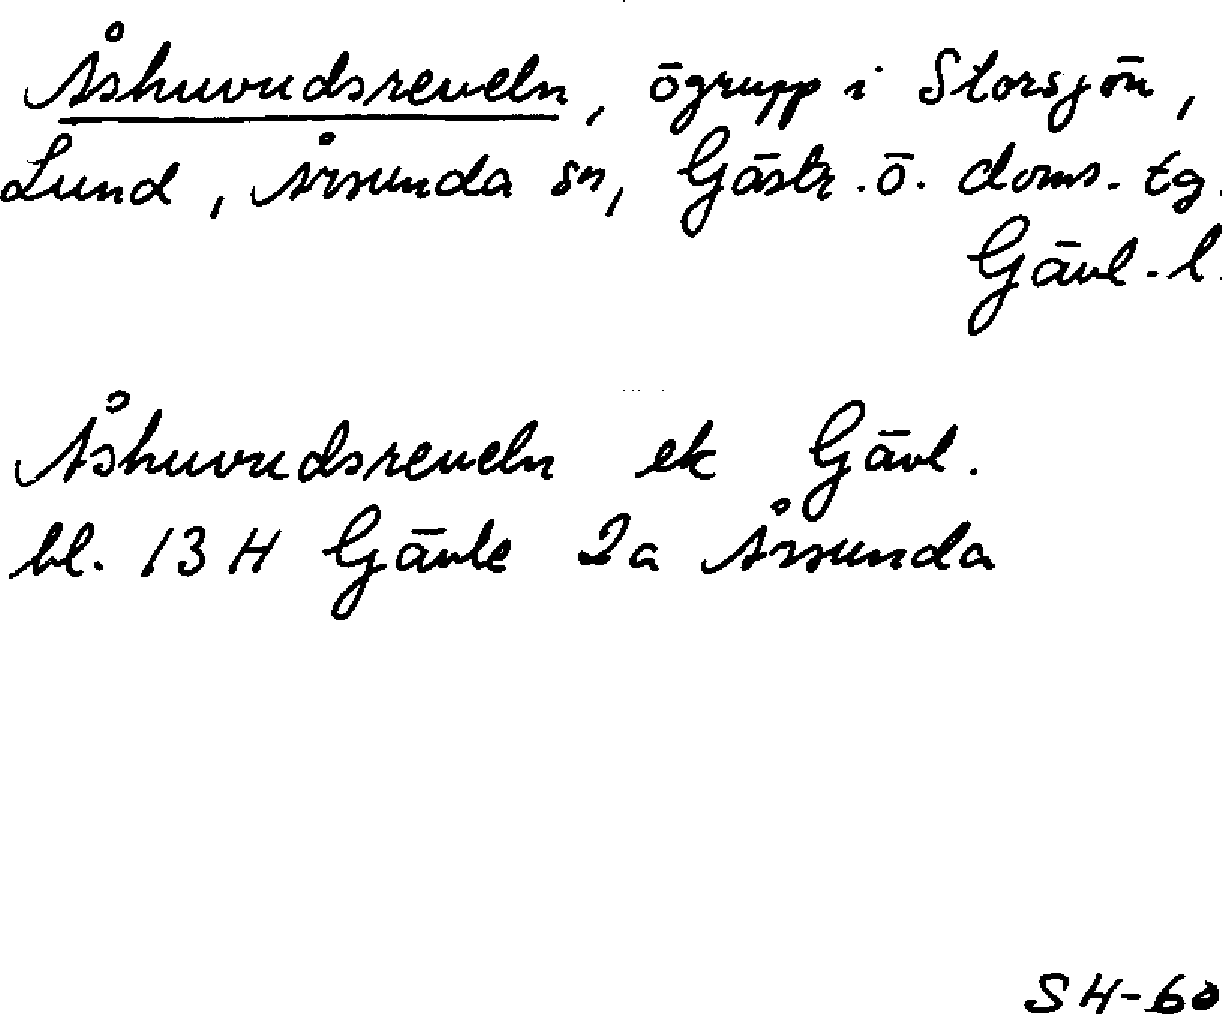 Åshuvudsreveln, ögrupp i Storsjön,
Lund, Årsunda sn, Gästr. ö. doms. tg.
Gävl. l.
Åshuvudsreveln ek Gävl.
bl. 13 H Gävle 2a Årsunda
SH-60